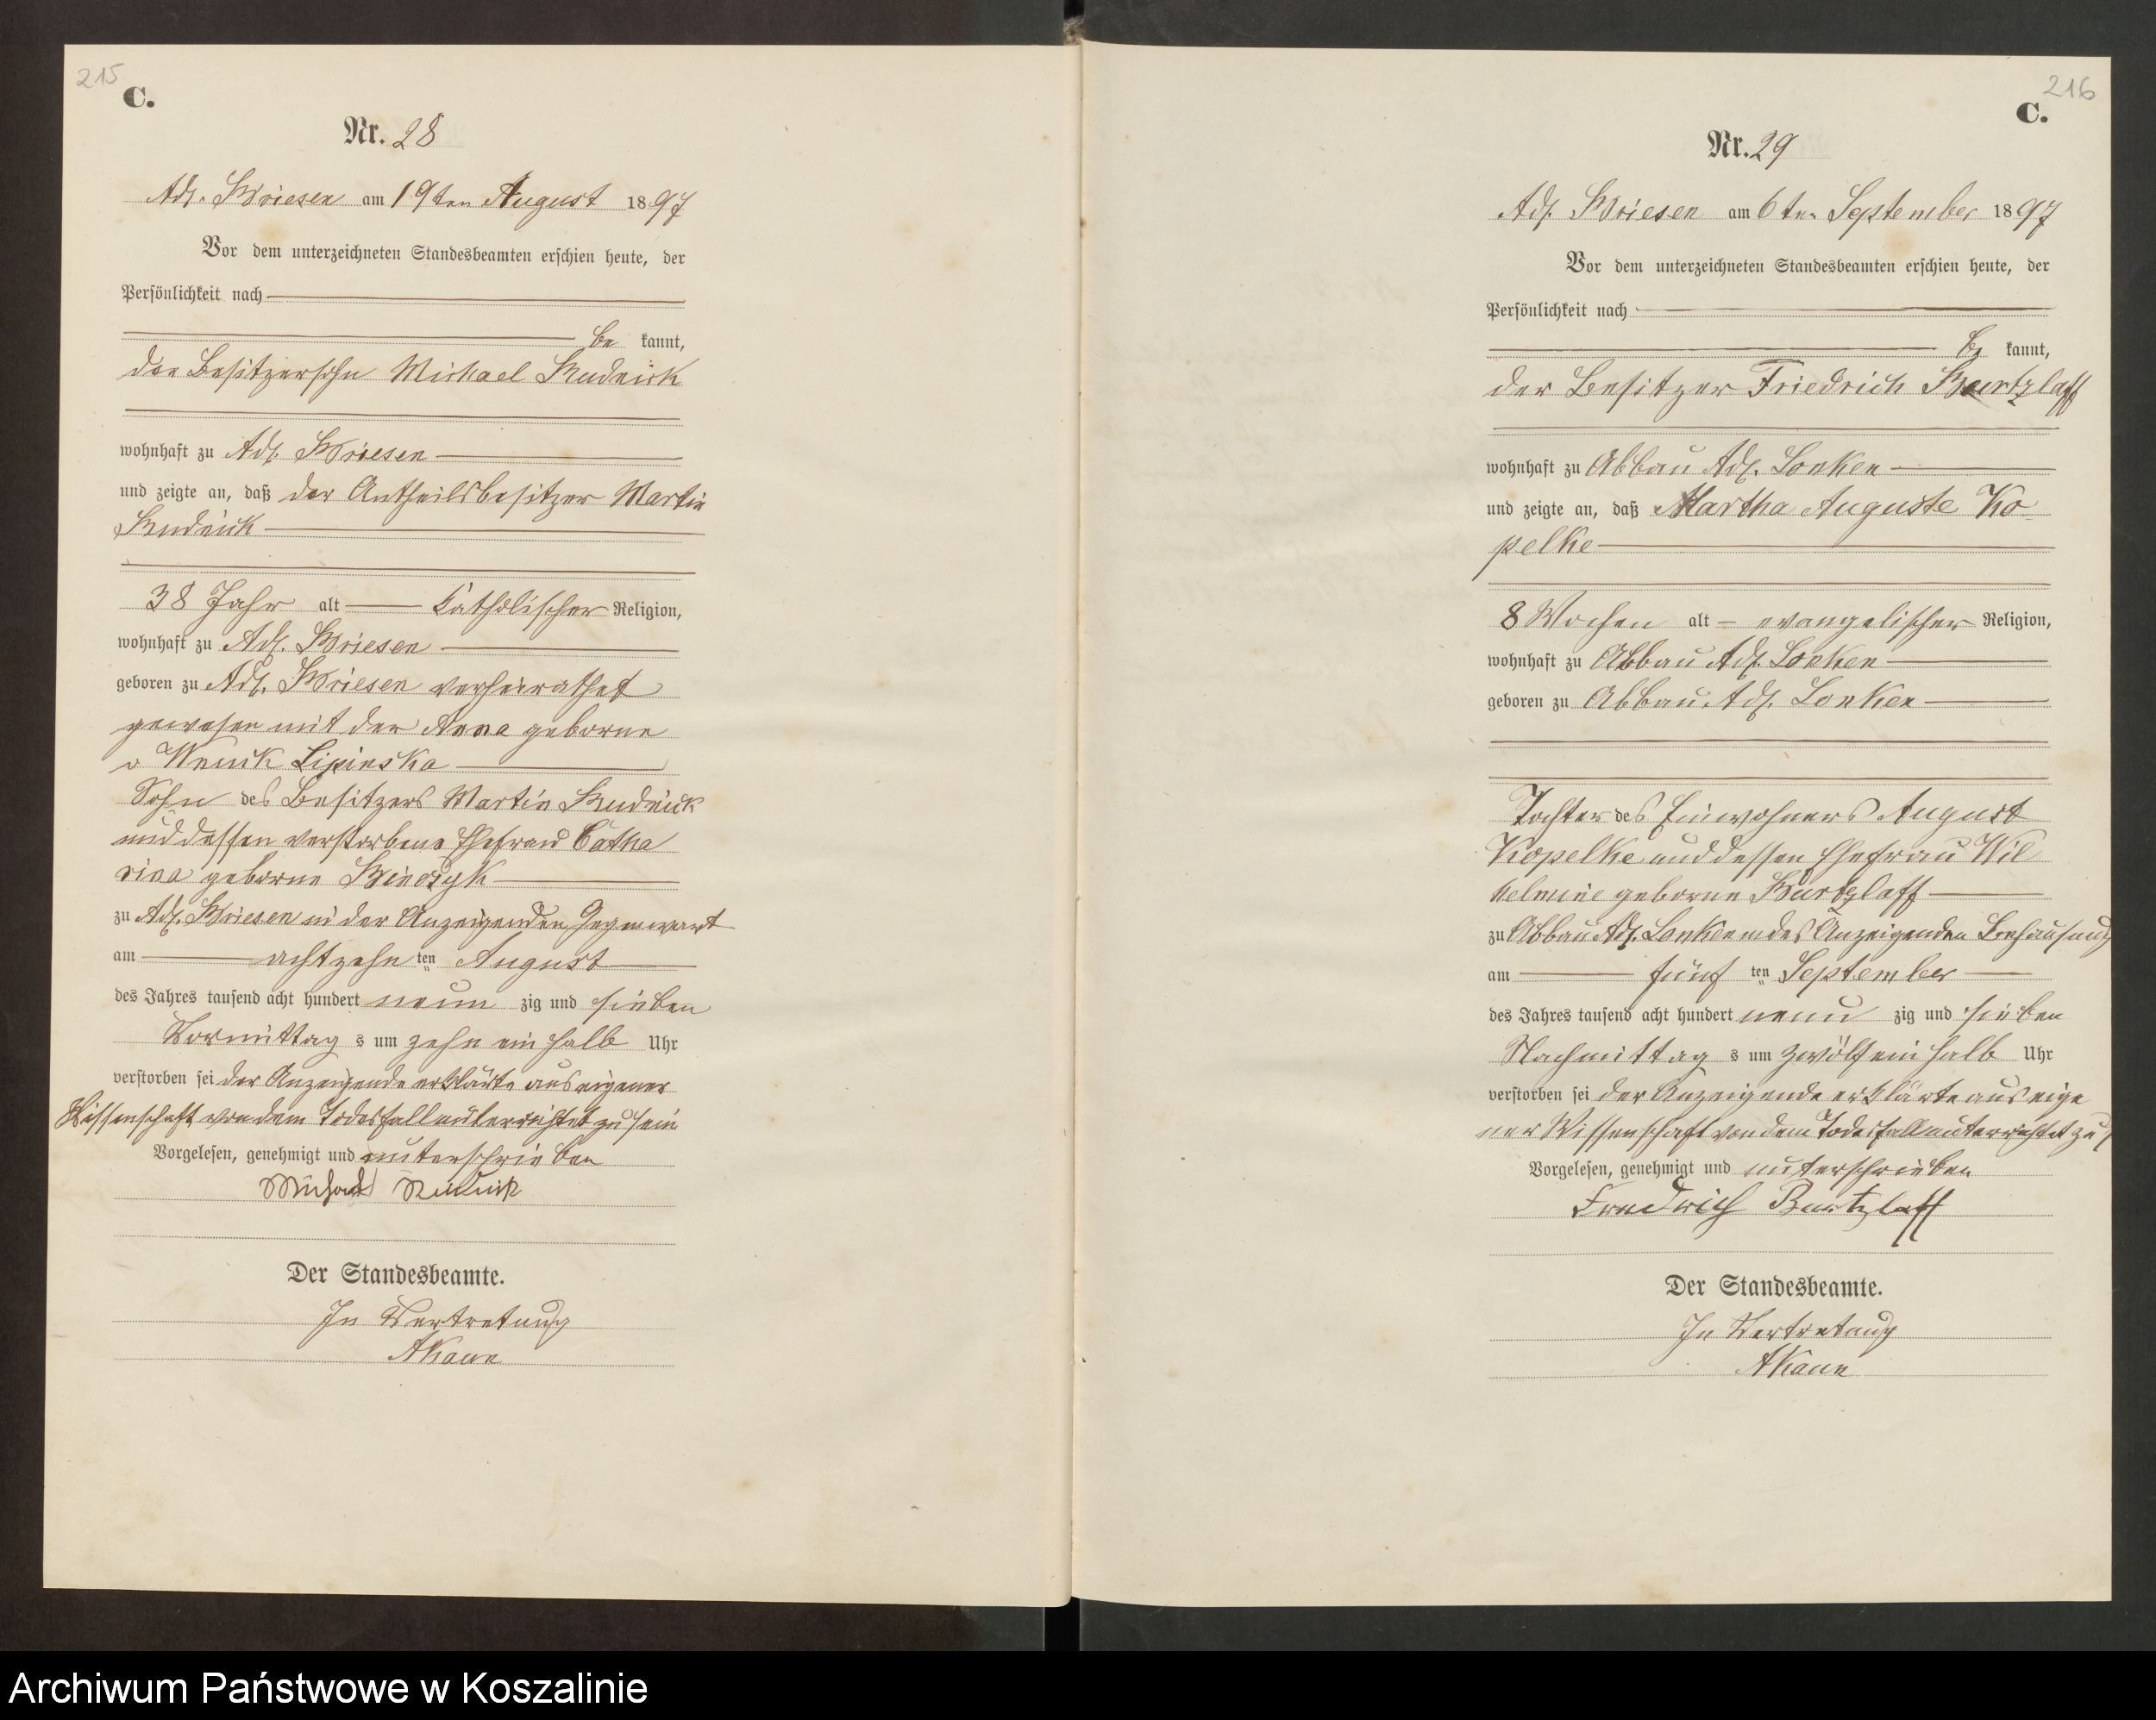 215
C.
Nr. 28
Adl. Briesen am 19ten August 1897
Vor dem unterzeichneten Standesbeamten erschien heute, der
Persönlichkeit nach
be kannt,
der Besitzersohn Michael Rudnick
wohnhaft zu Adl. Briesen
und zeigte an, daß der Antheilsbesitzer Martin
Rudnick
38 Jahr alt Catholischer Religion,
wohnhaft zu Adl. Briesen
geboren zu Adl. Briesen verheirathet
gewesen mit der Anna geborne
v Wnuck Lipinska
Sohn des Besitzers Martin Rudnick
und dessen verstorbene Ehefrau Catha
rina geborne
zu Adl. Briesen in der Anzeigenden Gegenwart
am achtzehn ten August
des Jahres tausend acht hundert neun zig und sieben
Vormittag s um zehn ein halb Uhr
verstorben sei der Anzeigende erklärte aus eigener
Wissenschaft von dem Todesfall unterrichtet zu sein
Vorgelesen, genehmigt und unterschrieben
Michael Rudnick
Der Standesbeamte.
In Vertretung
AKaun
216
C.
Nr. 29
Adl. Briesen am 6ten September 1897
Vor dem unterzeichneten Standesbeamten erschien heute, der
Persönlichkeit nach
be kannt,
der Besitzer Friedrich Burtzlaff
wohnhaft zu Abbau Adl. Lonken
und zeigte an, daß Martha Auguste Ko
pelke
8 Wochen alt evangelischer Religion,
wohnhaft zu Abbau Adl. Lonken
geboren zu Abbau Adl. Lonken
Tochter des Einwohners August
Kopelke und dessen Ehefrau Wil
helmine geborne Burtzlaff
zu Abbau Adl. Lonken in des Anzeigenden Behausung
am fünf ten September
des Jahres tausend acht hundert neun zig und sieben
Nachmittag s um zwölf ein halb Uhr
verstorben sei der Anzeigende erklärte aus eige
ner Wissenschaft von dem Todesfall unterrichtet zu
Vorgelesen, genehmigt und unterschrieben
Friedrich Burtzlaff
Der Standesbeamte.
In Vertretung
AKaun
Archiwum Państwowe w Koszalinie